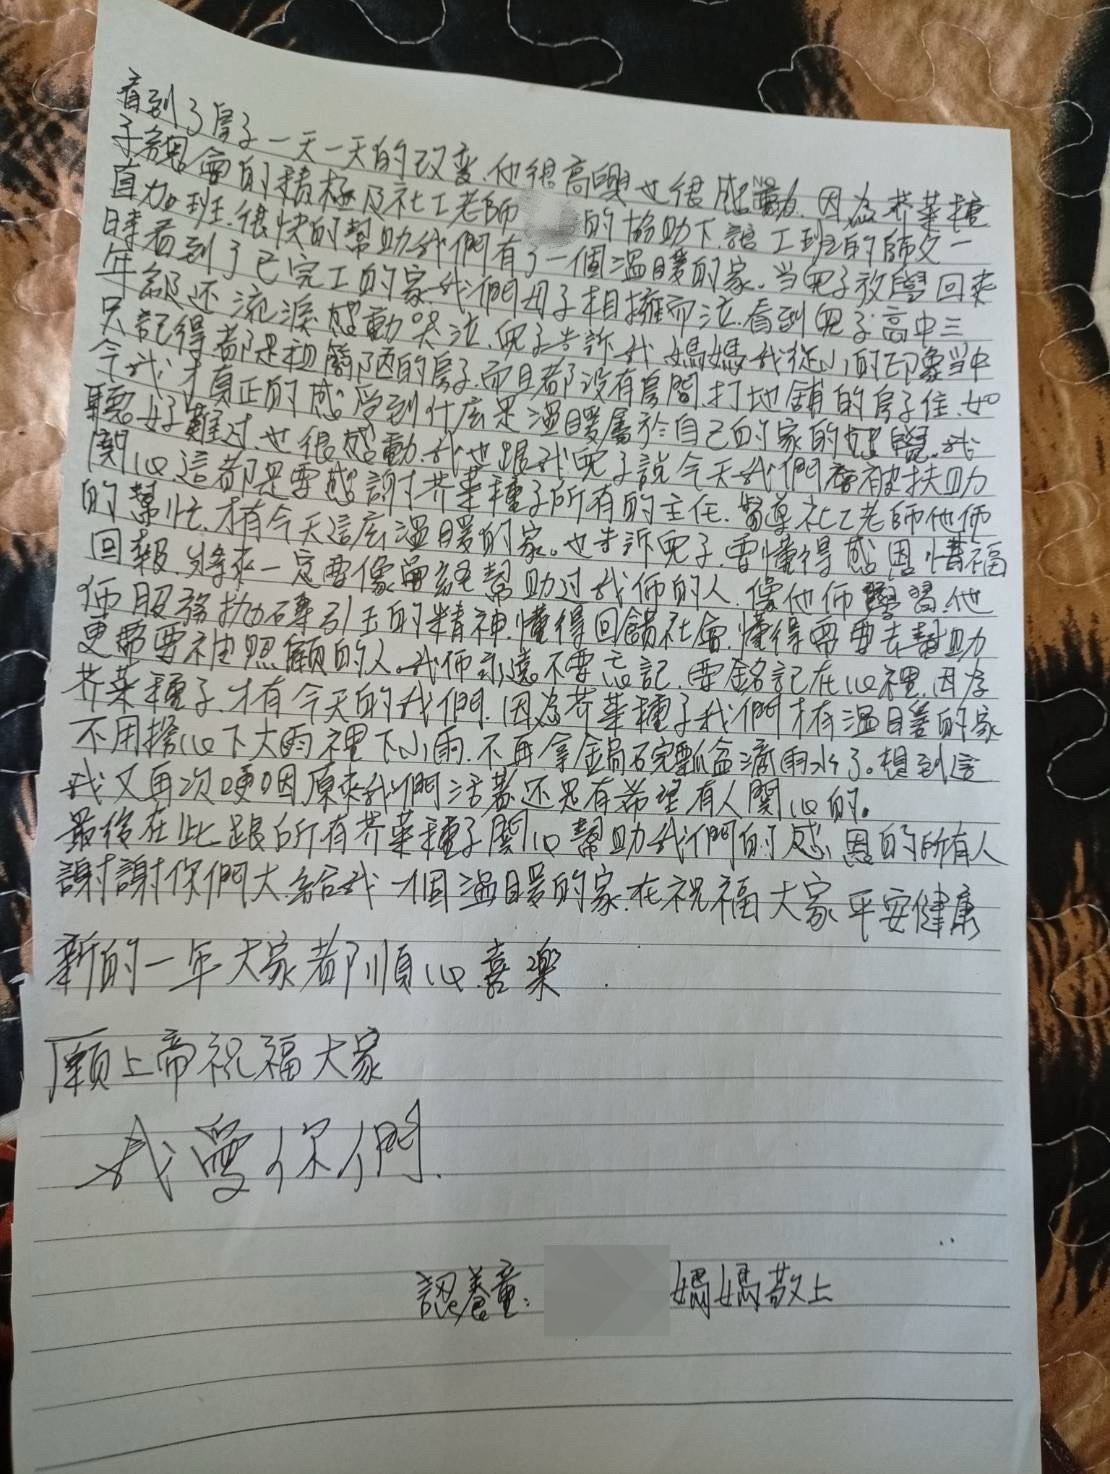 看到了房子一天一天的改變.他很高興也很感動.因為芥菜種
子總會的積極及社工老師 的協助下讓工班的師父一
直加班.很快的幫助我們有了一個溫暖的家。当兒子放學回來
時看到了已完工的家.我們母子相擁而泣.看到兒子高中三
年級還流淚感動哭泣.兒子告訴我媽媽我從小的印象当中
只記得都是租簡陋的房子.而且都沒有房間.打地舖的房子住.如
今我才真正的感受到什麼是溫暖屬於自己的家的感覺.我
聽好難过也很感動.我也跟我兒子說今天我們 被扶助
関心這都是要感謝芥菜種子所有的主任.督導社工老師他们
的幫忙.才有今天這麼溫暖的家。也告訴兒子.要懂得感恩惜福
回報.將來一定要像曾經幫助过我们的人.像他们學習.他
们服務拋磚引玉的精神.懂得回饋社會.懂得需要去幫助
更需要被照顧的人。我们永遠不要忘記.要銘記在心裡.因為
芥菜種子.才有今天的我們.因為芥菜種子我們才有溫暖的家
不用擔心下大雨裡下小雨.不再拿鍋碗瓢盆滴雨水了。想到這
我又再次哽咽原來我們活著还是有希望有人関心的。
最後在此跟所有芥菜種子関心幫助我們的感恩的所有人
謝謝你們大 給我一個溫暖的家.在祝福大家平安健康
新的一年大家都順心喜樂
願上帝祝福大家
我愛你們.
認養童: 媽媽敬上